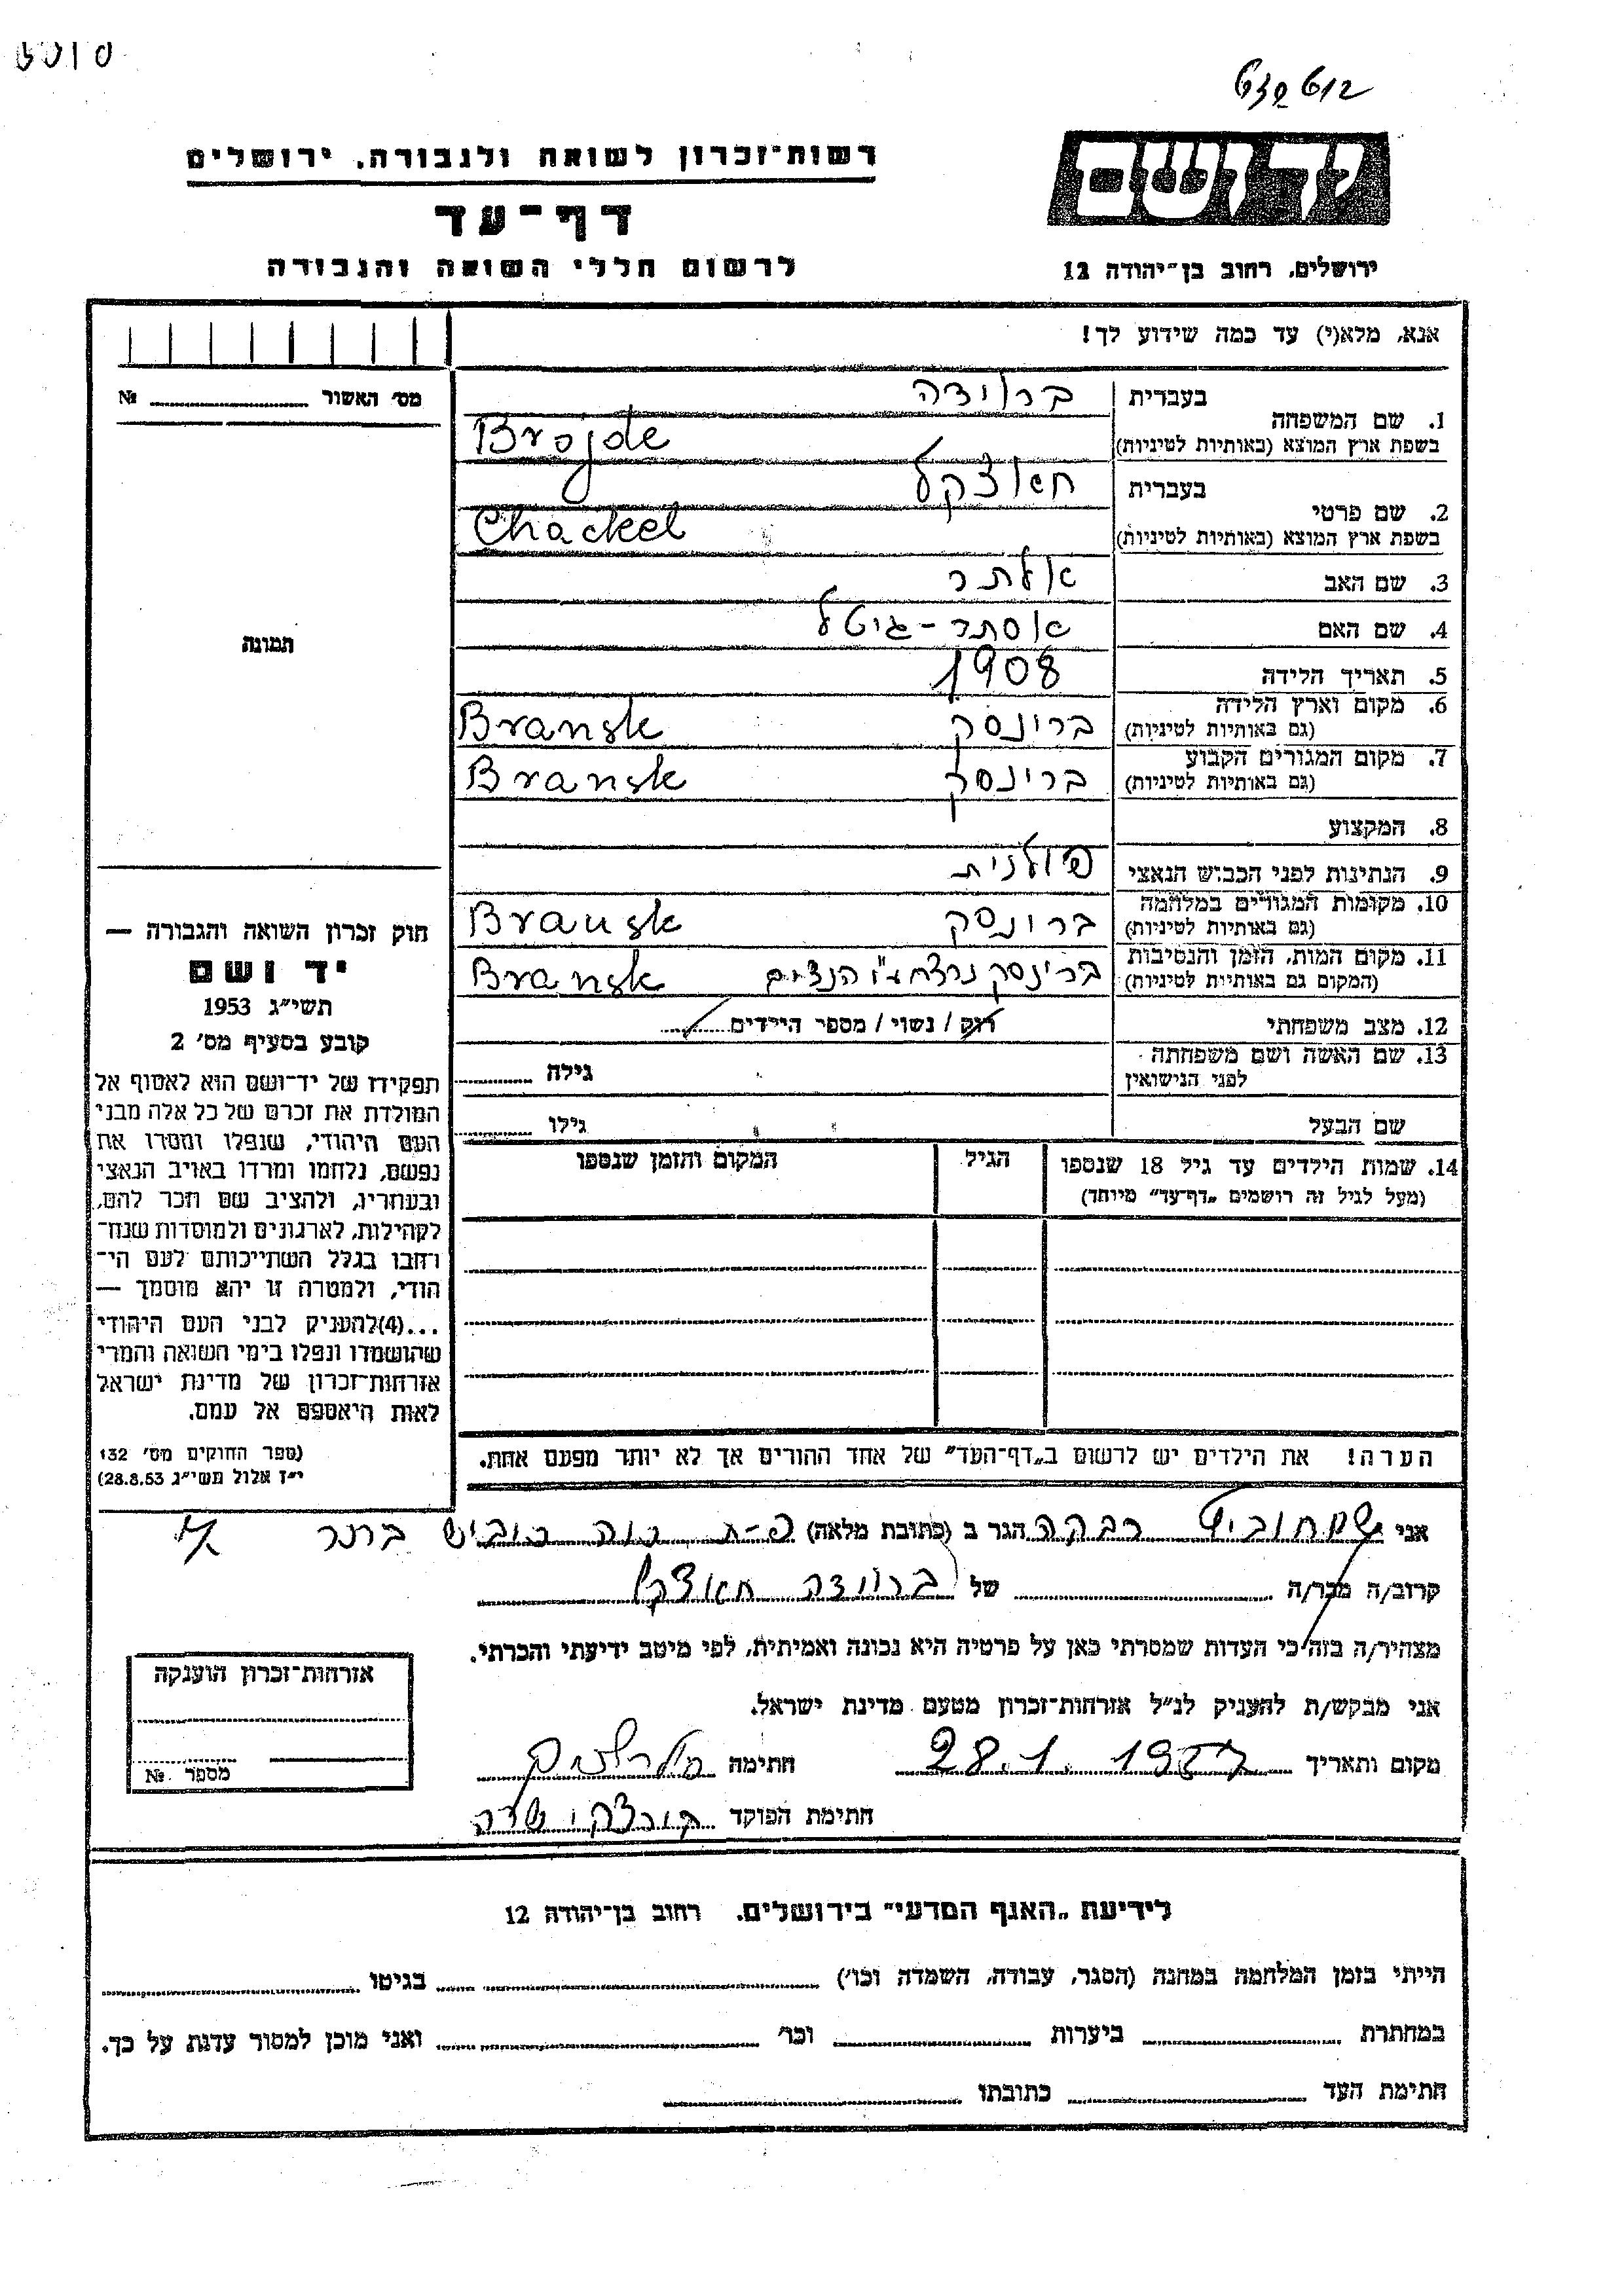 רשות־זכרון לשואה ולגבורה. ירושלים
יד ושם
דף־עד
לרשום חללי השואה והגבורה
ירושלים, רחוב בן־יהודה 12
אנא, מלא(י) עד כמה שידוע לך!
מס׳ האשור ........ №
תמונה
1. שם המשפחה
בעברית ברוידה
בשפת ארץ המוצא (באותיות לטיניות) Brojde
2. שם פרטי
בעברית חאצקל
בשפת ארץ המוצא (באותיות לטיניות) Chackel
3. שם האב אלתר
4. שם האם אסתר-גיטל
5. תאריך הלידה 1908
6. מקום וארץ הלידה (גם באותיות לטיניות) ברינסק Bransk
7. מקום המגורים הקבוע (גם באותיות לטיניות) ברינסק Bransk
8. המקצוע
9. הנתינות לפני הכבוש הנאצי פולנית
10. מקומות המגורים במלחמה (גם באותיות לטיניות) ברינסק Bransk
11. מקום המות, הזמן והנסיבות (המקום גם באותיות לטיניות) ברינסק נרצח ע"י הנצים Bransk
12. מצב משפחתי רוק / נשוי / מספר הילדים ........
13. שם האשה ושם משפחתה לפני הנישואין גילה ........
שם הבעל גילו ........
14. שמות הילדים עד גיל 18 שנספו הגיל המקום והזמן שנספו
(מעל לגיל זה רושמים „דף־עד” מיוחד)
הערה! את הילדים יש לרשום ב„דף־העד” של אחד ההורים אך לא יותר מפעם אחת.
חוק זכרון השואה והגבורה —
יד ושם
תשי״ג 1953
קובע בסעיף מס׳ 2
תפקידו של יד־ושם הוא לאסוף אל
המולדת את זכרם של כל אלה מבני
העם היהודי, שנפלו ומסרו את
נפשם, נלחמו ומרדו באויב הנאצי
ובעוזריו, ולהציב שם וזכר להם,
לקהילות, לארגונים ולמוסדות שנח־
רבו בגלל השתייכותם לעם הי־
הודי, ולמטרה זו יהא מוסמך —
...(4)להעניק לבני העם היהודי
שהושמדו ונפלו בימי השואה והמרי
אזרחות־זכרון של מדינת ישראל
לאות היאספם אל עמם.
(ספר החוקים מס׳ 132
י״ז אלול תשי״ג 28.8.53)
אני רבקה הגר ב (כתובת מלאה) פ-ת נוה ברנר
קרוב/ה מכר/ה ........ של ברוידה חאצקל
מצהיר/ה בזה כי העדות שמסרתי כאן על פרטיה היא נכונה ואמיתית, לפי מיטב ידיעתי והכרתי.
אני מבקש/ת להעניק לנ״ל אזרחות־זכרון מטעם מדינת ישראל.
מקום ותאריך 28.1.1957 חתימה
חתימת הפוקד
אזרחות־זכרון הוענקה
מספר №
לידיעת „האגף המדעי” בירושלים. רחוב בן־יהודה 12
הייתי בזמן המלחמה במחנה (הסגר, עבודה, השמדה וכו׳) ........ בגיטו ........
במחתרת ........ ביערות ........ וכו׳ ........ ואני מוכן למסור עדות על כך.
חתימת העד ........ כתובתו ........